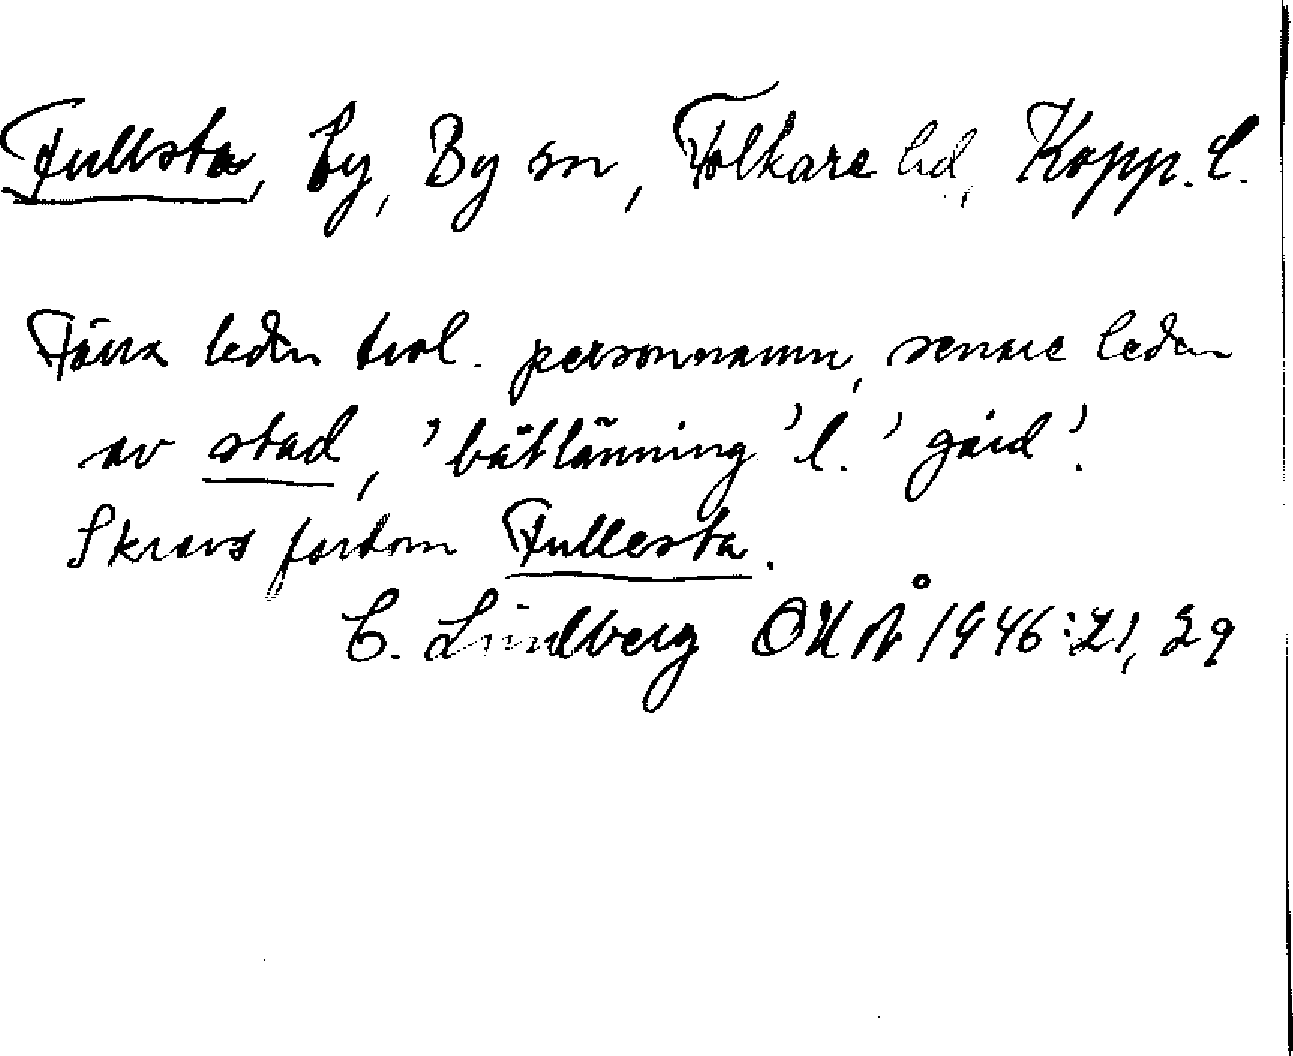 Fullsta, by, By sn, Folkare hd, Kopp. l.
Förra leden trol. personnamn, senare leden
av stad, 'båtlänning' l. 'gård'.
Skrevs fordom Fullesta.
C. Lindberg OUÅ 1946:21, 29